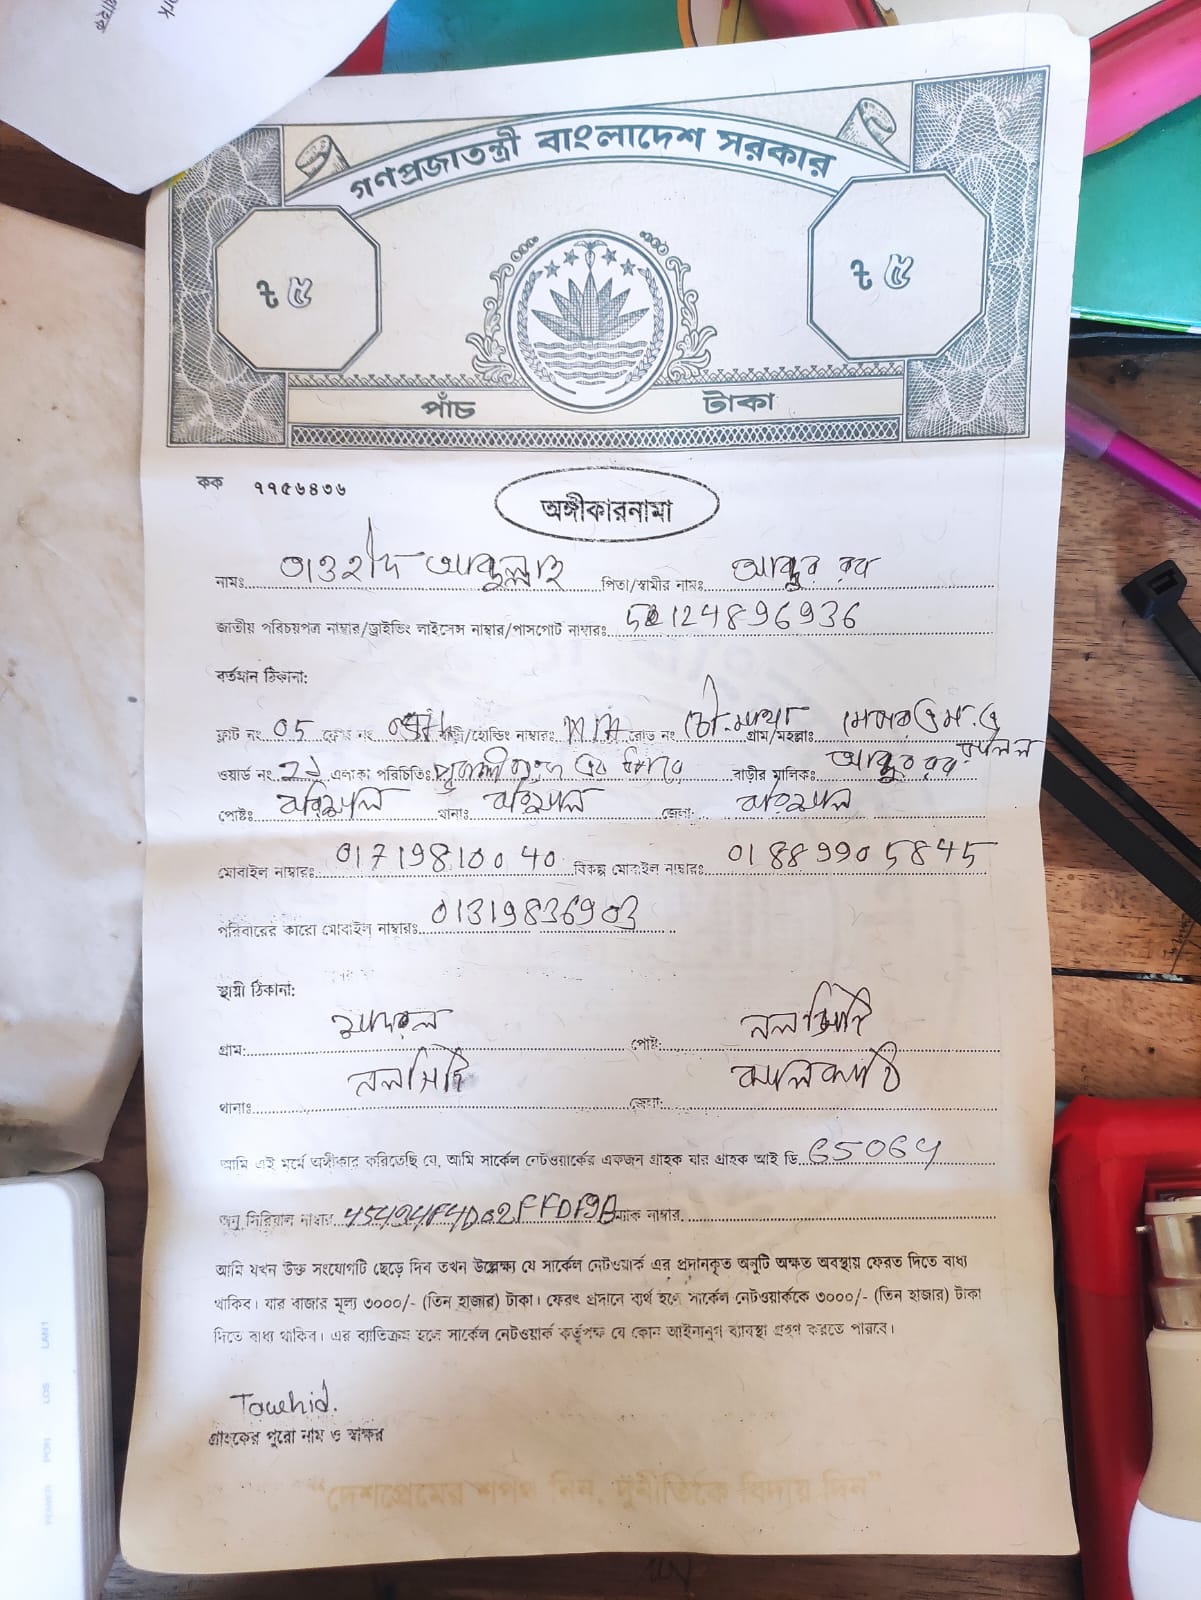 গণপ্রজাতন্ত্রী বাংলাদেশ সরকার
৳ ৫ ৳ ৫
পাঁচ টাকা
কক ৭৭৫৬৪৩৬
অঙ্গীকারনামা
নামঃ তাওহীদ আব্দুল্লাহ পিতা/স্বামীর নামঃ আব্দুর রব
জাতীয় পরিচয়পত্র নাম্বার/ড্রাইভিং লাইসেন্স নাম্বার/পাসপোর্ট নাম্বারঃ 124896936
বর্তমান ঠিকানা:
ফ্লাট নং 05 ফ্লোর নং বাড়ী/হোল্ডিং নাম্বারঃ রোড নং চৌ-মাথা গ্রাম/মহল্লাঃ
ওয়ার্ড নং এলাকা পরিচিতিঃ বাড়ীর মালিকঃ আব্দুর রব
পোষ্টঃ বরিশাল থানাঃ বরিশাল জেলা: বরিশাল
মোবাইল নাম্বারঃ 01719810040 বিকল্প মোবাইল নাম্বারঃ 01889905845
পরিবারের কারো মোবাইল নাম্বারঃ 01319836903
স্থায়ী ঠিকানা:
গ্রাম: পোষ্ট: নলছিটি
থানাঃ নলছিটি জেলা: ঝালকাঠি
আমি এই মর্মে অঙ্গীকার করিতেছি যে, আমি সার্কেল নেটওয়ার্কের একজন গ্রাহক যার গ্রাহক আই ডি G5064
অনু সিরিয়াল নাম্বার ম্যাক নাম্বার
আমি যখন উক্ত সংযোগটি ছেড়ে দিব তখন উল্লেক্ষ্য যে সার্কেল নেটওয়ার্ক এর প্রদানকৃত অনুটি অক্ষত অবস্থায় ফেরত দিতে বাধ্য
থাকিব। যার বাজার মূল্য ৩০০০/- (তিন হাজার) টাকা। ফেরৎ প্রদানে ব্যর্থ হলে সার্কেল নেটওয়ার্ককে ৩০০০/- (তিন হাজার) টাকা
দিতে বাধ্য থাকিব। এর ব্যতিক্রম হলে সার্কেল নেটওয়ার্ক কর্তৃপক্ষ যে কোন আইনানুগ ব্যাবস্থা গ্রহণ করতে পারবে।
Towhid.
গ্রাহকের পুরো নাম ও স্বাক্ষর
"দেশপ্রেমের শপথ নিন, দুর্নীতিকে বিদায় দিন"
LAN1
LOS
PON
POWER